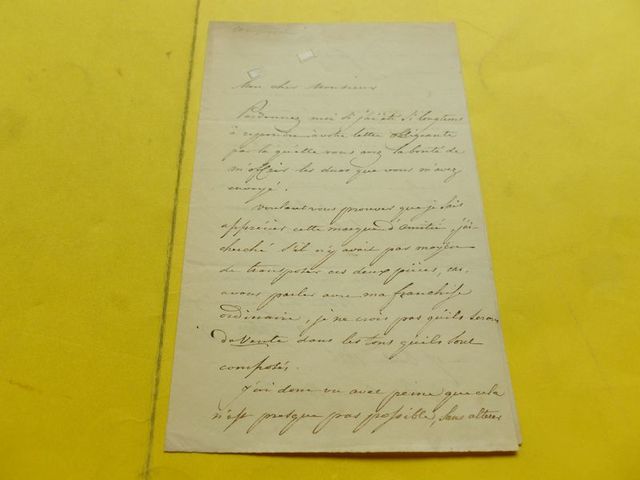 Mon cher Monsieur
Pardonnez moi si j'ai été si longtems
à repondre à votre lettre obligeante
par la quelle vous avez la bonté de
m'offrir les duos que vous m'avez
envoyé.
Voulant vous prouver que je sais
apprécier cette marque d'amitié, j'ai
cherché s'il n'y avait pas moyen
de transposer ces deux pièces, car,
a vous parler avec ma franchise
ordinaire, je ne crois pas qu'ils seront
de Vente dans les tons qu'ils sont
composés.
J'ai donc vu avec peine que cela
n'est presque pas possible, sans alterer